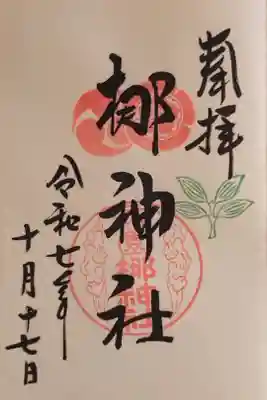 奉拝
梛神社
令和七年
十月十七日
梛神社